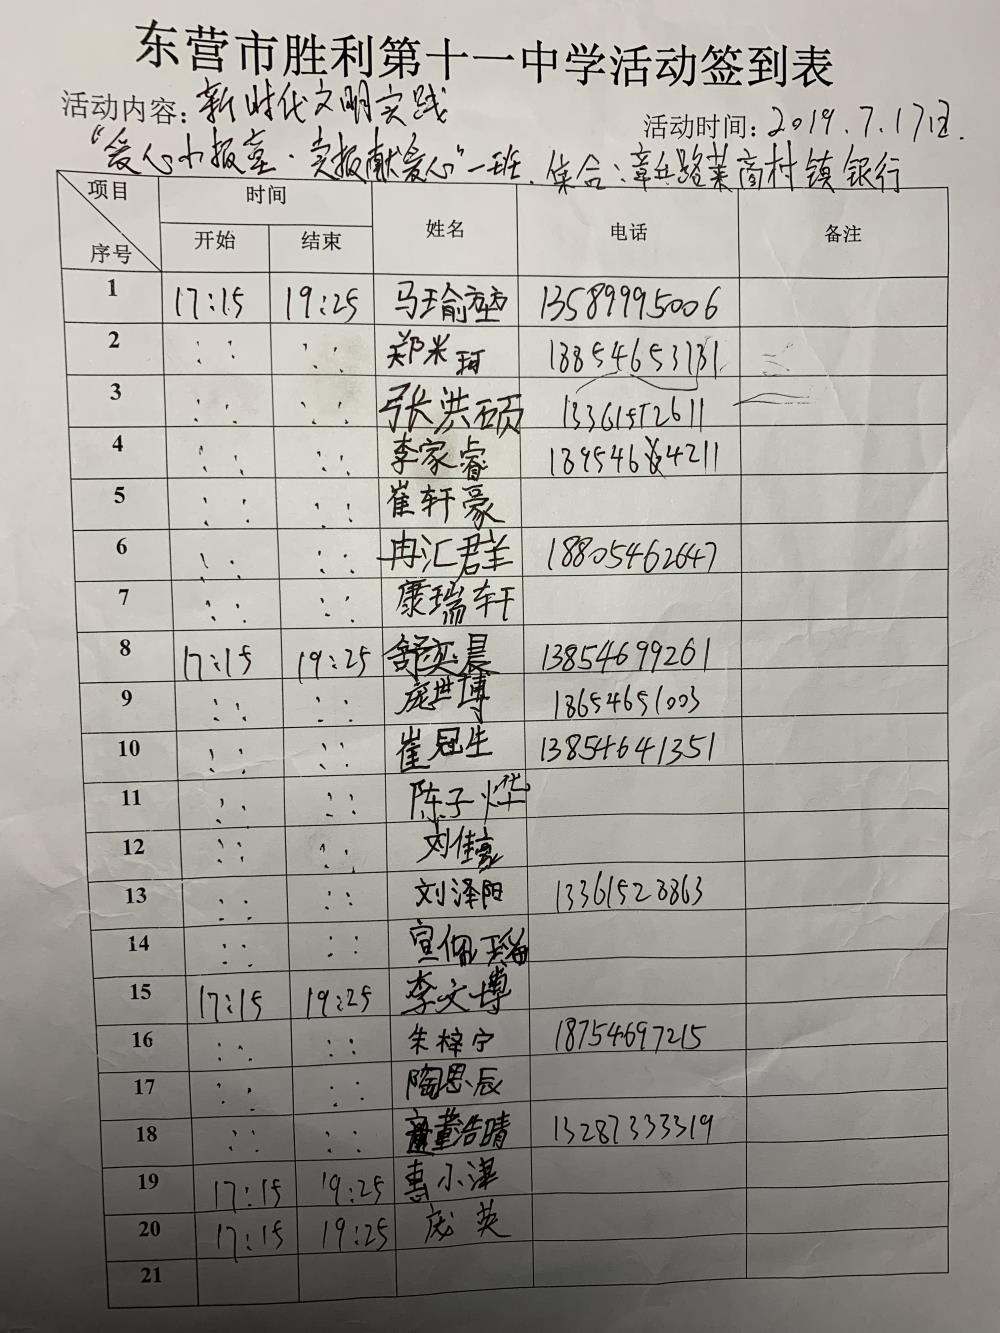 东营市胜利第十一中学活动签到表
活动内容：新时代文明实践 活动时间：2019.7.17日.
“爱心小报童·卖报献爱心”一班. 集合：章丘路莱商村镇银行
项目 序号 时间 姓名 电话 备注
开始 结束
1 17:15 19:25 马瑜堃 13589995006
2 : : : : 郑米珂 13854653131
3 : : : : 张洪硕 13361512611
4 : : : : 李家睿 139546 4211
5 : : : : 崔轩豪
6 : : : : 冉汇群 18805462647
7 : : : : 康瑞轩
8 17:15 19:25 舒奕晨 13854699261
9 : : : : 庞世博 18654651003
10 : : : : 崔冠生 13854641351
11 : : : : 陈子烨
12 : : : : 刘佳豪
13 : : : : 刘泽阳 13361523863
14 : : : : 宣佩瑶
15 17:15 19:25 李文博
16 : : : : 朱梓宁 18754697215
17 : : : : 陶思辰
18 : : : : 董浩晴 13287333319
19 17:15 19:25 惠小津
20 17:15 19:25 庞英
21